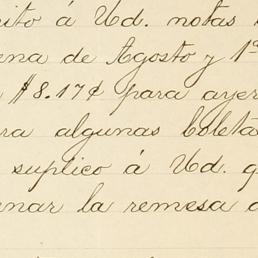 rito á Ud. notas
ena de Agosto y 1ª
$8.17¢ para ayer
ra algunas boleta
suplico á Ud. q
nar la remesa d